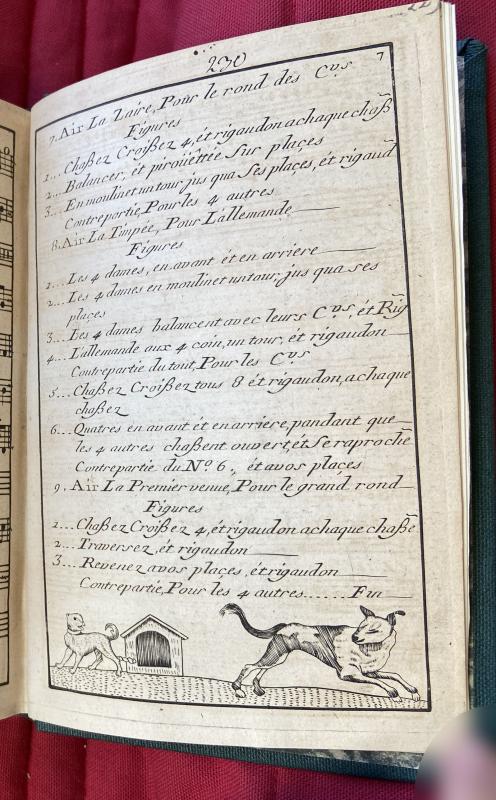 230
7
7. Air La Zaire, Pour le rond des C.vs
Figures
1... Chaßez Croißez 4, ét rigaudon a chaque chaß
2... Balancer, ét piroüéttée sur plaçes
3... En moulinet un tour, jus qua Ses plaçes, ét rigaud
Contrepartie, Pour les 4 autres
8. Air La Timpée, Pour L'allemande
Figures
1... Les 4 dames, en avant ét en arriere
2... Les 4 dames en moulinet un tour, jus qua ses
plaçes
3... Les 4 dames balancent avec leurs C.vs, ét Rig
4... L'allemande aux 4 coin, un tour, ét rigaudon
Contrepartie du tout, Pour les C.vs
5... Chaßez Croißez tous 8 ét rigaudon, a chaque
chaßez
6... Quatres en avant ét en arriere, pandant que
les 4 autres chaßent ouvert, ét Se raproché
Contrepartie du N.o 6., ét a vos plaçes
9. Air La Premier venue, Pour le grand rond
Figures
1... Chaßez Croißez 4, ét rigaudon a chaque chaße
2... Traversez, ét rigaudon
3... Revenez a vos plaçes, ét rigaudon
Contrepartie, Pour les 4 autres...... Fin